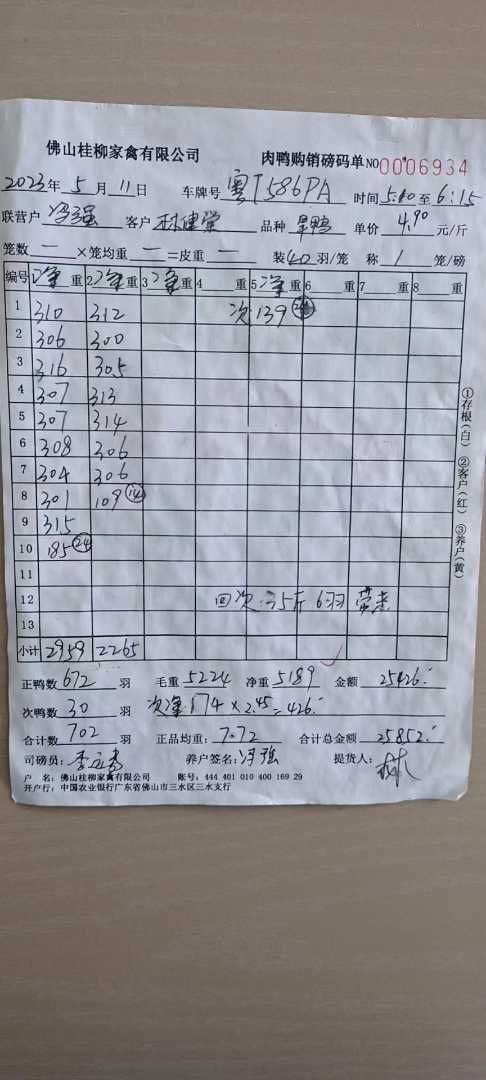 佛山桂柳家禽有限公司 肉鸭购销磅码单 NO 0006934
2023年 5月 11日 车牌号 粤T586PA 时间 5:00 至 6:15
联营户 冯强 客户 林健堂 品种 旱鸭 单价 4.90 元/斤
笼数 一 ×笼均重 一 =皮重 一 装 40 羽/笼 称 1 笼/磅
编号 1净重 2净重 3净重 4 重 5净重 6 重 7 重 8 重
1 310 312 次 139
2 306 300
3 316 305
4 307 313
5 307 314
6 308 306
7 304 306
8 301 109 14
9 315
10 185 24
11
12 回次:35斤 6羽
13
小计 2959 2265
①存根(白) ②客户(红) ③养户(黄)
正鸭数 672 羽 毛重 5224 净重 5189 金额 25426.
次鸭数 30 羽 次净 174 × 2.45 = 426.
合计数 702 羽 正品均重: 7.72 合计总金额 25852.
司磅员: 养户签名: 冯强 提货人: 林
户 名: 佛山桂柳家禽有限公司 账号: 444 401 010 400 169 29
开户行: 中国农业银行广东省佛山市三水区三水支行